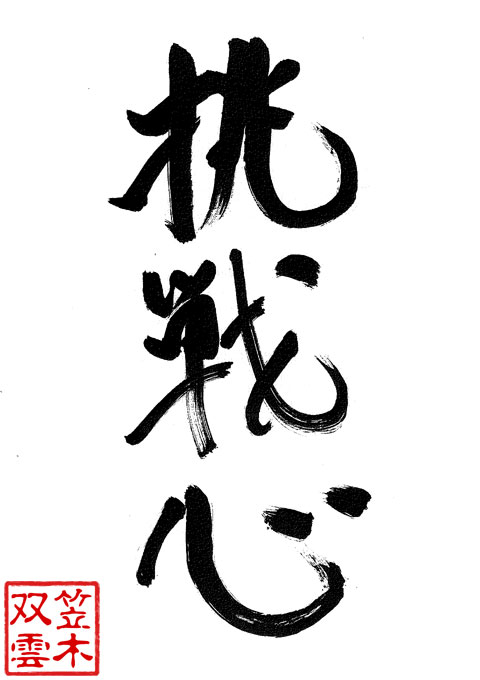 挑戦心
笠木
双雲